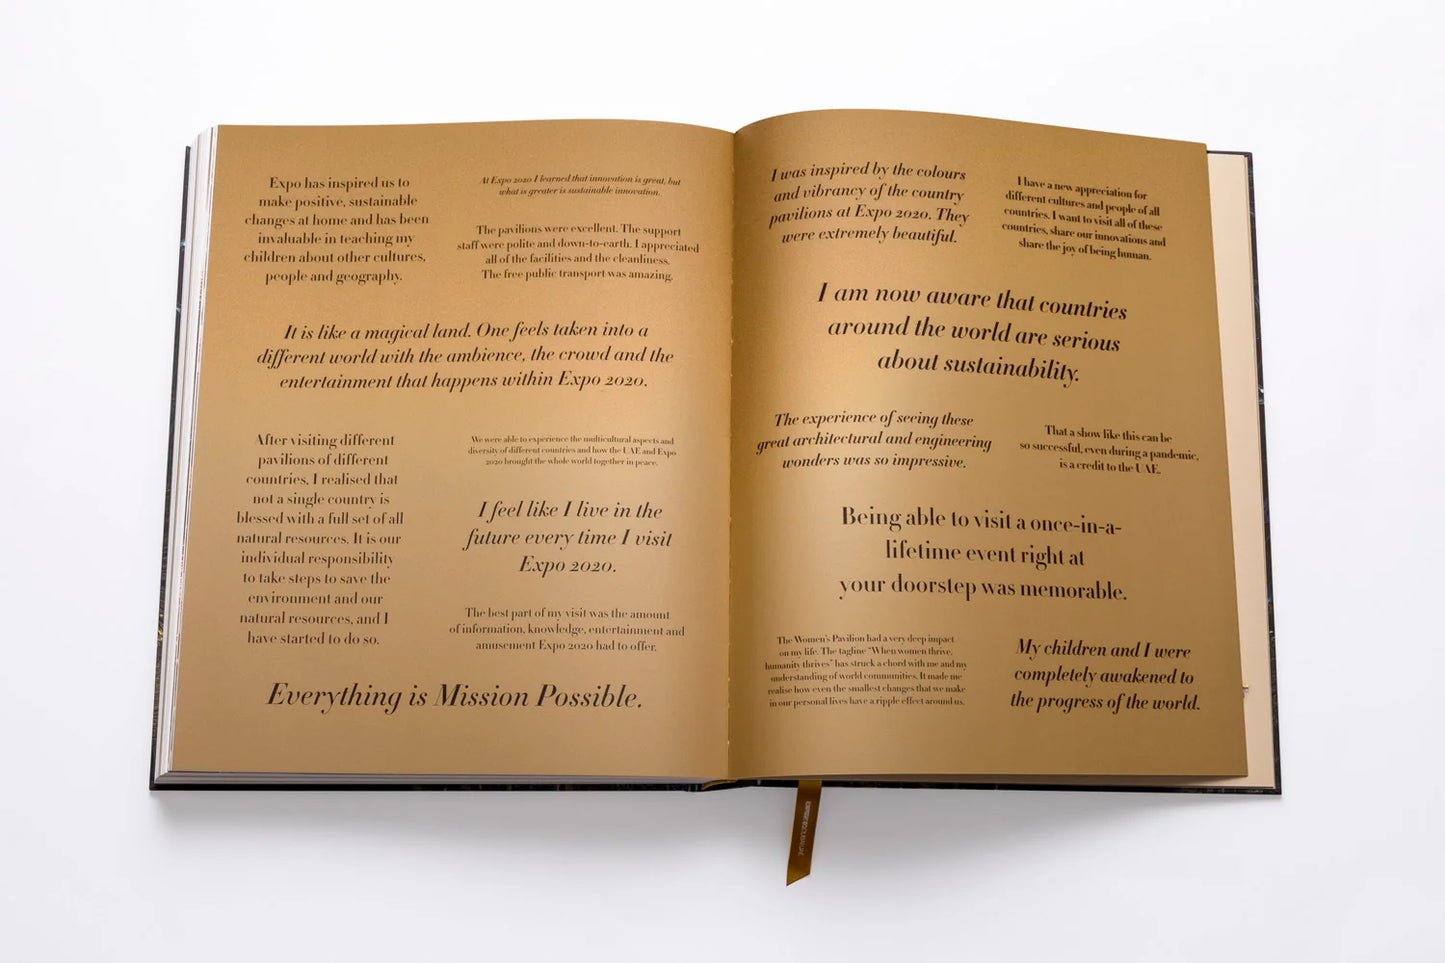 Expo has inspired us to
make positive, sustainable
changes at home and has been
invaluable in teaching my
children about other cultures,
people and geography.
At Expo 2020 I learned that innovation is great, but
what is greater is sustainable innovation.
The pavilions were excellent. The support
staff were polite and down-to-earth. I appreciated
all of the facilities and the cleanliness.
The free public transport was amazing.
It is like a magical land. One feels taken into a
different world with the ambience, the crowd and the
entertainment that happens within Expo 2020.
After visiting different
pavilions of different
countries, I realised that
not a single country is
blessed with a full set of all
natural resources. It is our
individual responsibility
to take steps to save the
environment and our
natural resources, and I
have started to do so.
We were able to experience the multicultural aspects and
diversity of different countries and how the UAE and Expo
2020 brought the whole world together in peace.
I feel like I live in the
future every time I visit
Expo 2020.
The best part of my visit was the amount
of information, knowledge, entertainment and
amusement Expo 2020 had to offer.
Everything is Mission Possible.
I was inspired by the colours
and vibrancy of the country
pavilions at Expo 2020. They
were extremely beautiful.
I have a new appreciation for
different cultures and people of all
countries. I want to visit all of these
countries, share our innovations and
share the joy of being human.
I am now aware that countries
around the world are serious
about sustainability.
The experience of seeing these
great architectural and engineering
wonders was so impressive.
That a show like this can be
so successful, even during a pandemic,
is a credit to the UAE.
Being able to visit a once-in-a-
lifetime event right at
your doorstep was memorable.
The Women's Pavilion had a very deep impact
on my life. The tagline "When women thrive,
humanity thrives" has struck a chord with me and my
understanding of world communities. It made me
realise how even the smallest changes that we make
in our personal lives have a ripple effect around us.
My children and I were
completely awakened to
the progress of the world.